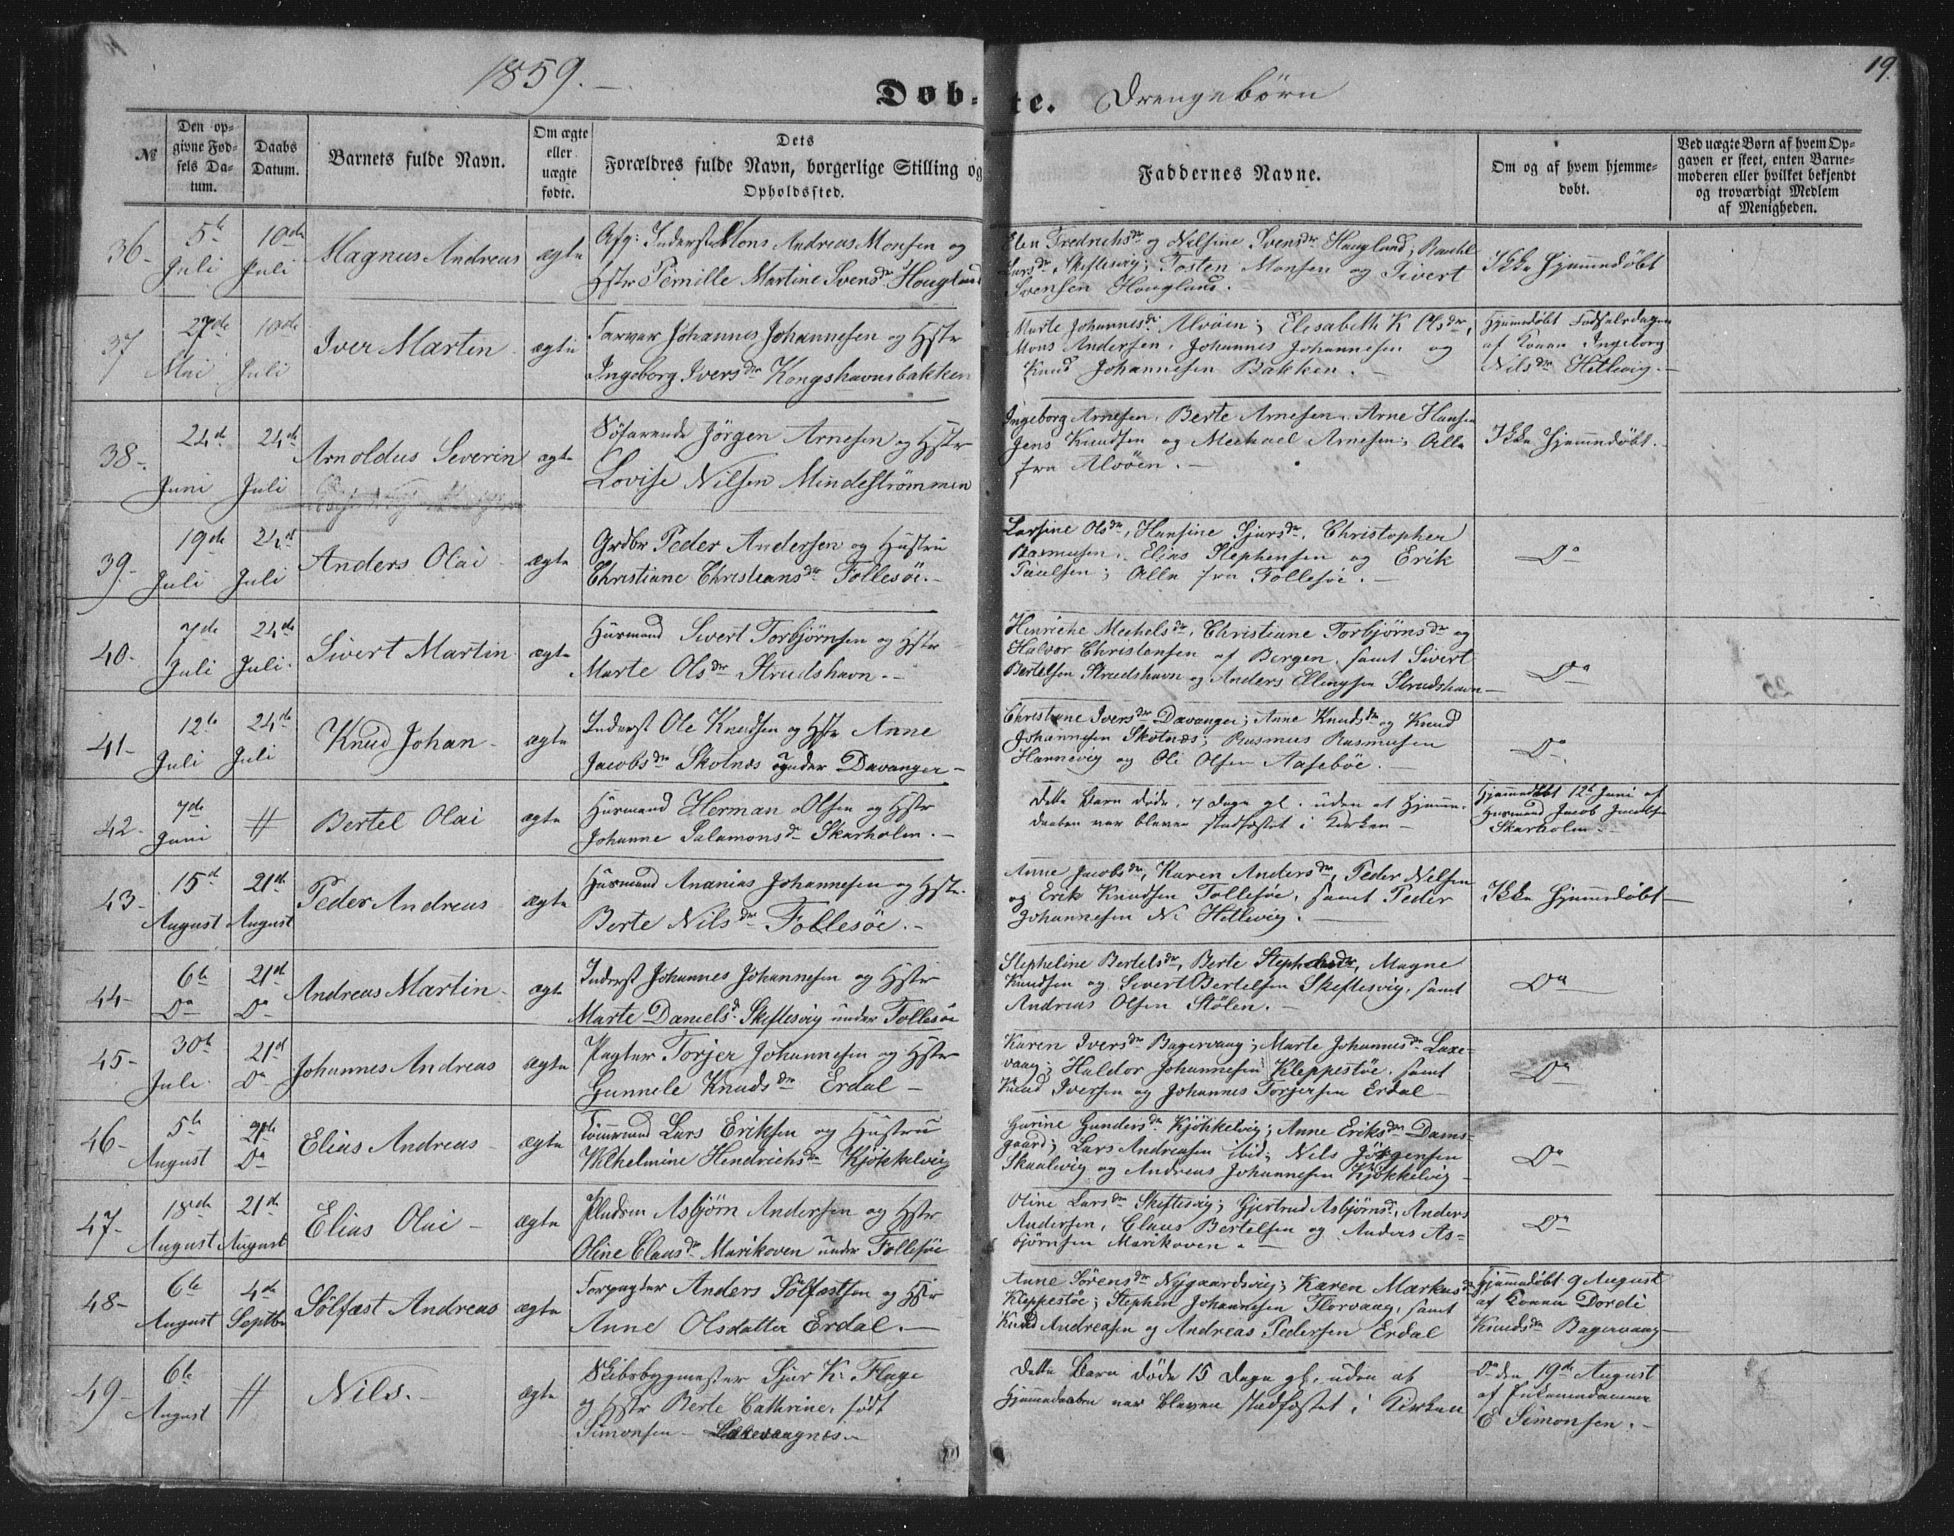 1859.
Døb-te. Drengebørn
19.
№
Den opgivne Fødsels Datum.
Daabs Datum.
Barnets fulde Navn.
Om ægte eller uægte fødte.
Dets Forældres fulde Navn, borgerlige Stilling og Opholdssted.
Faddernes Navne.
Om og af hvem hjemmedøbt.
Ved uægte Børn af hvem Opgaven er skeet, enten Barnemoderen eller hvilket bekjendt og troværdigt Medlem af Menigheden.
36-
5te Juli
10de Juli
Magnus Andreas
ægte
Afg: Inderst Mons Andreas Monsen og
Hstr Pernille Martine Svensdr Hougland
Elen Fredrichsdr og Nilsine Svensdr Hougland, Rachel
Larsdr Skiftesvig; Tosten Monsen og Sivert
Svensen Hougland.
Ikke Hjemmedøbt
37
27de Mai
10de Juli
Iver Martin
ægte
Farver Johannes Johannesen og Hstr
Ingeborg Iversdr Kongshavnsbakken
Marte Johannesdr Alvøen; Elisabeth K Olsdr,
Mons Andersen, Johannes Johannesen og
Knud Johannesen Bakken.-
Hjemmedøbt Fødselsdagen
af Konen Ingeborg
Nilsdr Hetlevig.-
38-
24de Juni
24de Juli
Arnoldus Severin
ægte
Søfarende Jörgen Arnesen og Hstr
Lovise Nilsen Mindeströmmen
Ingeborg Arnesen, Berte Arnesen, Arne Hansen
Jens Knudsen og Mechael Arnesen; Alle
fra Alvöen.-
Ikke Hjemmedøbt.
39-
19de Juli
24de Juli
Anders Olai
ægte
Grdbr Peder Andersen og Hustru
Christiane Christiansdr Follesöe.-
Larsine Olsdr, Hansine Sjursdr, Christopher
Rasmusen, Elias Stephensen og Erik
Paulsen; Alle fra Follesöe.-
Do
40-
7de Juli
24de Juli.
Sivert Martin
ægte
Husmand Sivert Torbjørnsen og Hstr
Marte Olsdr Strudshavn.-
Hinriche Mechelsdr, Christiane Torbjørnsdr og
Halvor Christensen af Bergen, samt Sivert
Bertelsen Strudshavn og Anders Ellingsen Strudshavn-
Do
41-
12te Juli
24de Juli
Knud Johan-
ægte
Inderst Ole Knudsen og Hstr Anne
Jacobsdr Skotnæs under Davanger-
Christiane Iversdr Davanger; Anne Knudsdr og Knud
Johannesen Skotnæs; Rasmus Rasmusen
Hannevig og Ole Olsen Aasebøe.
Do
42-
7de Juni
#
Bertel Olai
ægte
Husmand Herman Olsen og Hstr
Johanne Salamonsdr Skarholm.-
Dette Barn døde, 7 Dage gl. uden at Hjemme-
daaben var bleven stadfæstet i Kirken-
Hjemmedøbt 12te Juni af
Husmand Jacob Jacobsen
Skarholm-
43-
15de August
21de August
Peder Andreas
ægte
Husmand Ananias Johannesen og Hstr.
Berte Nilsdr Follesöe.-
Anne Jacobsdr, Karen Andersdr, Peder Nilsen
og Erik Knudsen Follesöe, samt Peder
Johannesen N. Hetlevig.-
Ikke Hjemmedøbt-
44-
6te Do
21de Do
Andreas Martin
ægte
Inderst Johannes Johannesen og Hstr
Marte Danielsdr Skiftesvig under Follesöe
Stepheline Bertelsdr, Berte Stephensdr, Magne
Knudsen og Sivert Bertelsen Skiftesvig, samt
Andreas Olsen Stölen.-
Do
45-
30te Juli
21de Do
Johannes Andreas
ægte
Pagter Torjer Johannesen og Hstr
Gunnele Knudsdr Erdal-
Karen Iversdr Bagervaag; Marte Johannesdr Laxe-
vaag; Haldor Johannesen Kleppestöe, samt
Knud Iversen og Johannes Torjersen Erdal-
Do
46-
5te August
21de Do
Elias Andreas-
ægte
Tömmermand Lars Eriksen og Hustru
Wilhelmine Hendrichsdr Kjökkelvig
Gurine Gundersdr Kjökkelvig; Anne Eriksdr Dams-
gaard; Lars Andreasen ibid; Nils Jörgensen
Skaalevig og Andreas Johannesen Kjökkelvig-
Do
47-
18de August
21de August
Elias Olai-
ægte
Pladsm Asbjørn Andersen og Hstr
Oline Clausdr Marikoven under Follesöe
Oline Larsdr Skiftesvig; Gjertrud Asbjørnsd, Anders
Andersen, Claus Bertelsen og Anders As-
bjørnsen Marikoven.-
Do
48-
6te August
4de Septbr
Sölfæst Andreas
ægte
Forpagter Anders Sölfæstsen og Hstr
Anne Olsdatter Erdal.-
Anne Sörensdr Nygaardsvig; Karen Markusdr
Kleppestöe; Stephen Johannesen Florvaag, samt
Knud Andreasen og Andreas Pedersen Erdal
Hjemmedøbt 9 August
af Konen Dordi
Knudsdr Bagervaag-
49-
6te August
#
Nils.-
ægte
Skibsbygmester Sjur K. Flage
og Hstr Berte Cathrine, født
Simonsen- Laxevaagnes-
Dette Barn døde 15 Dage gl, uden at
Hjemmedaaben var bleven stadfæstet i Kirken
Do den 19de August
af
E Simonsen.-